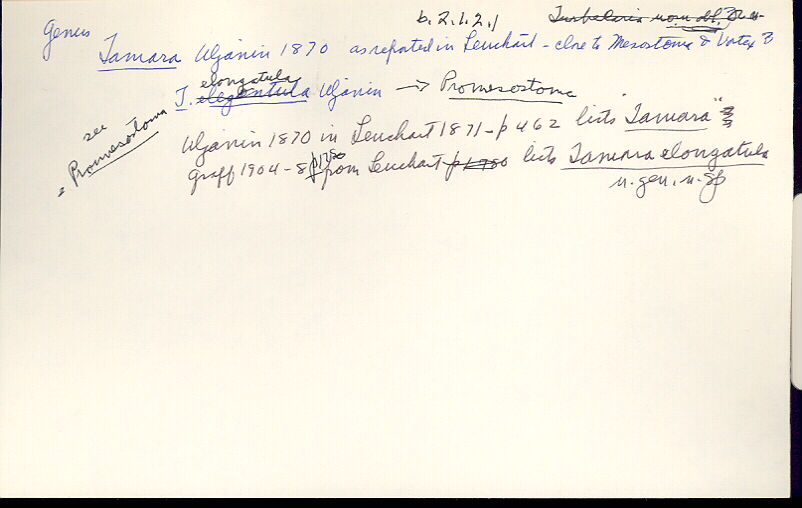 b. 2.1.2.1
Genus
Tamara Uljanin 1870 as reported in Leuchart - close to Mesostoma & Vortex
elongatula
T. Uljanin → Promesostoma
see
= Promesostoma
Uljanin 1870 in Leuchart 1871 - p 462 lists "Tamara"
Graff 1904-8 p1780 from Leuchart p 1780 lists Tamara elongatula
n. gen. n. sp